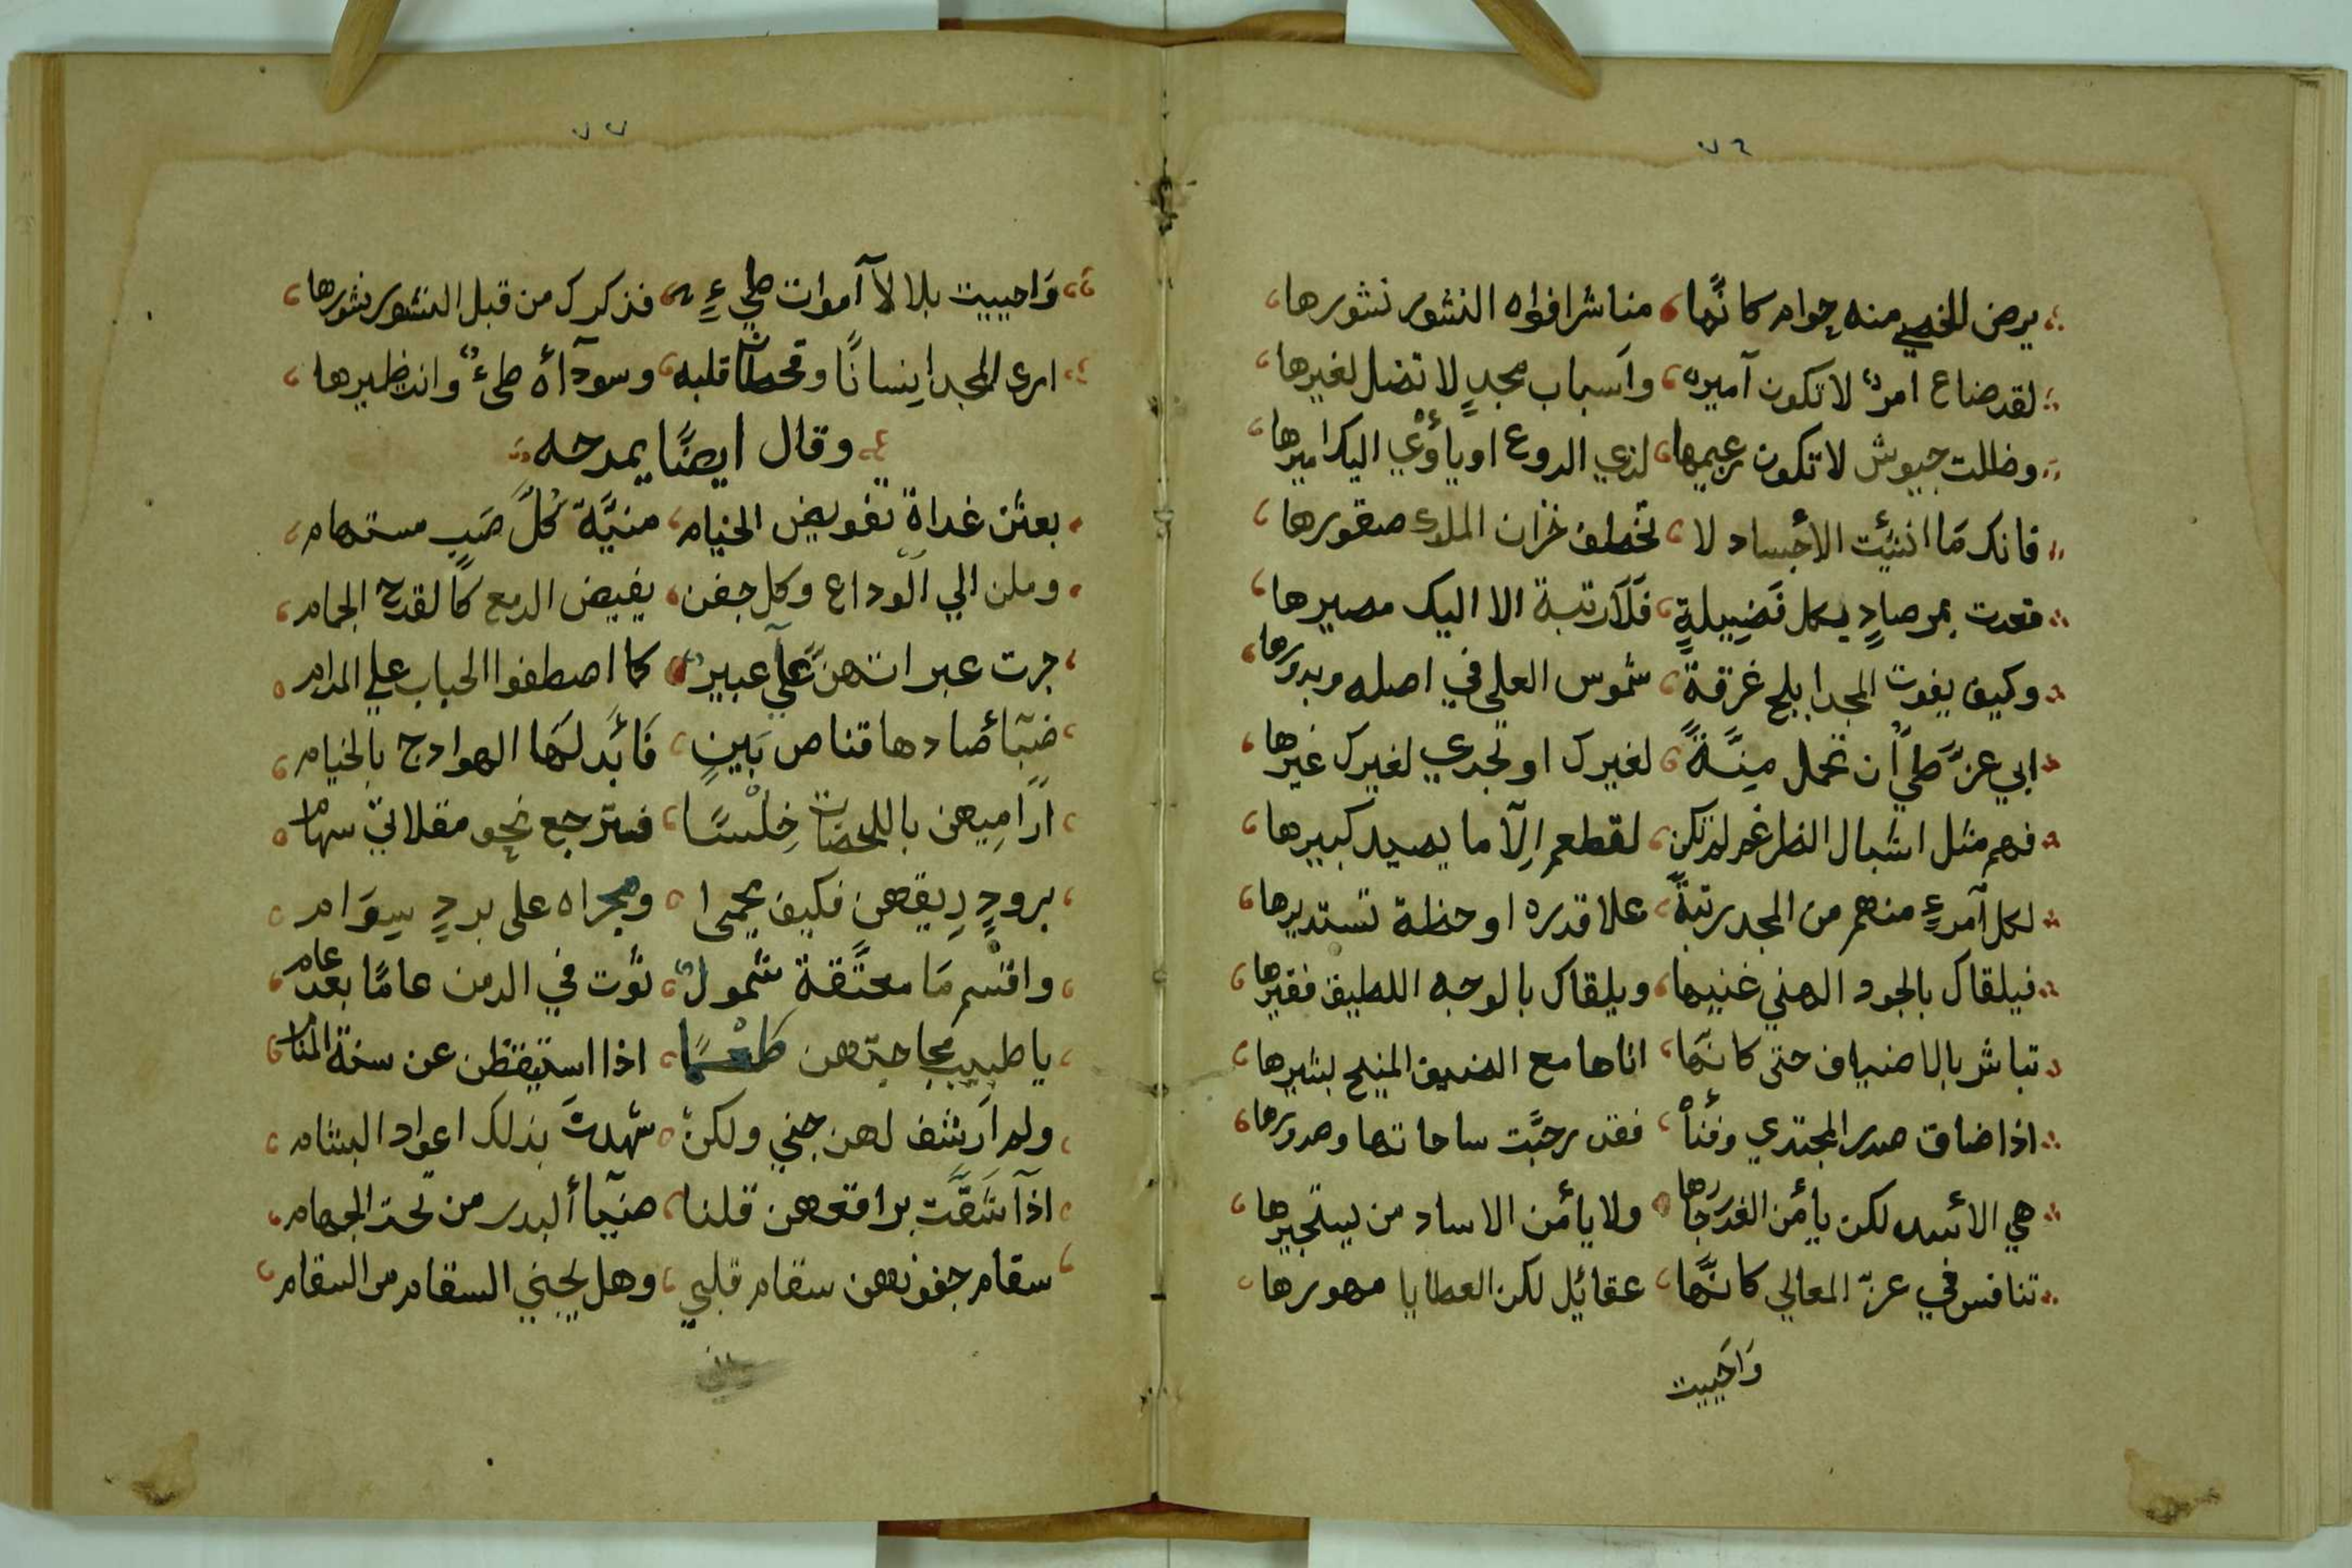 ٧٦
يرض الخصي منه جوام كانها مناشر افواه النشور نشورها
لقد ضاع امرٌ لا تكون آميره وآسباب مجدٍ لا تضل لغيرها
وظلت جيوش لا تكون زعيمها لذي الروع او يأوي اليك اميرها
فانك مَا انثيت الاجساد لا تخطف خزان الملوك صقورها
قعدت بمرصادٍ بكل فَضِيلةٍ فَلَا رتبة الا اليك مصيرها
وكيف يفوت المجد ابلج غرقة شموس العلي في اصله وبدورها
ابي عزَّ طيٍ أن تحمل مِنَّةً لغيرك او تجدي لغيرك غيرها
فهم مثل اشبال الضراغم لم تكن لقطعم اِلّا ما يصيد كبيرها
لكل آمرءٍ منهم من المجد رتبةً علا قدره او حنظة تستديرها
فيلقاك بالجود الهني غنيها ويلقاك بالوجه اللطيف فقيرها
تباشر بالاضياف حتى كانّها اتاها مع الضيف المنيح بشيرها
اذا ضاق صدر المجتدي وفنأ فقد رحبَّت ساحاتها وصدورها
هي الأسد لكن يأمن الغدر جارها ولا يأمن الاساد من يستجيرها
تنافس في عزّ المعالي كانَّها عقائل لكن العطايا مهورها
وَاحَييت
٧٧
وَاحييت بلالاً آموات طيءٍ فذكرك من قبل النشور نشورها
ارى المجد اِنسانًا وقحطان قلبه وسودآأه طيءٌ وانت ظهيرها
وقال ايضًا يمدحه
بعثن غداة تفويض الخيام منيَّة كُلَّ صَبٍ مستهام
وملن الي آلوداع وكل جفن يفيض الدمع كالقدح الجمام
جرت عبراتهنَّ علَي عبيرٌ كما اصطفوا الحباب علي المدام
ضبّاً صادها قناص بَينٍ فَأبَدلَها الهوادج بالخيام
اُرَامِيهن باللحضات خِلْسًا فترجع نحو مقلاتي سهام
برودٍ رِيقهن فكيف يحمى ومجراه على بردٍ سِوَام
واقسْم مَا معتَّقة شمولٌ ثوت في الدمن عامًا بعد عام
يا طيب مجاجتهن طعْمًا اذا استيقظن عن سنة المنام
ولم اَرشف لهن جني ولكن شهدتَ بذلك اعواد البشام
اذآ شَقَّت براقعهن قلنا ضيآ ألبدر من تحت الجهام
سقام جفونهن سقام قلبي وهل يجني السقام من السقام